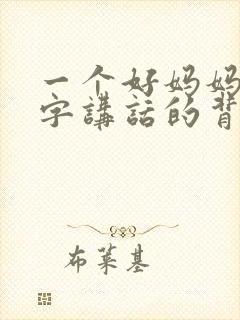 一个好妈妈
字講話的背
布莱基